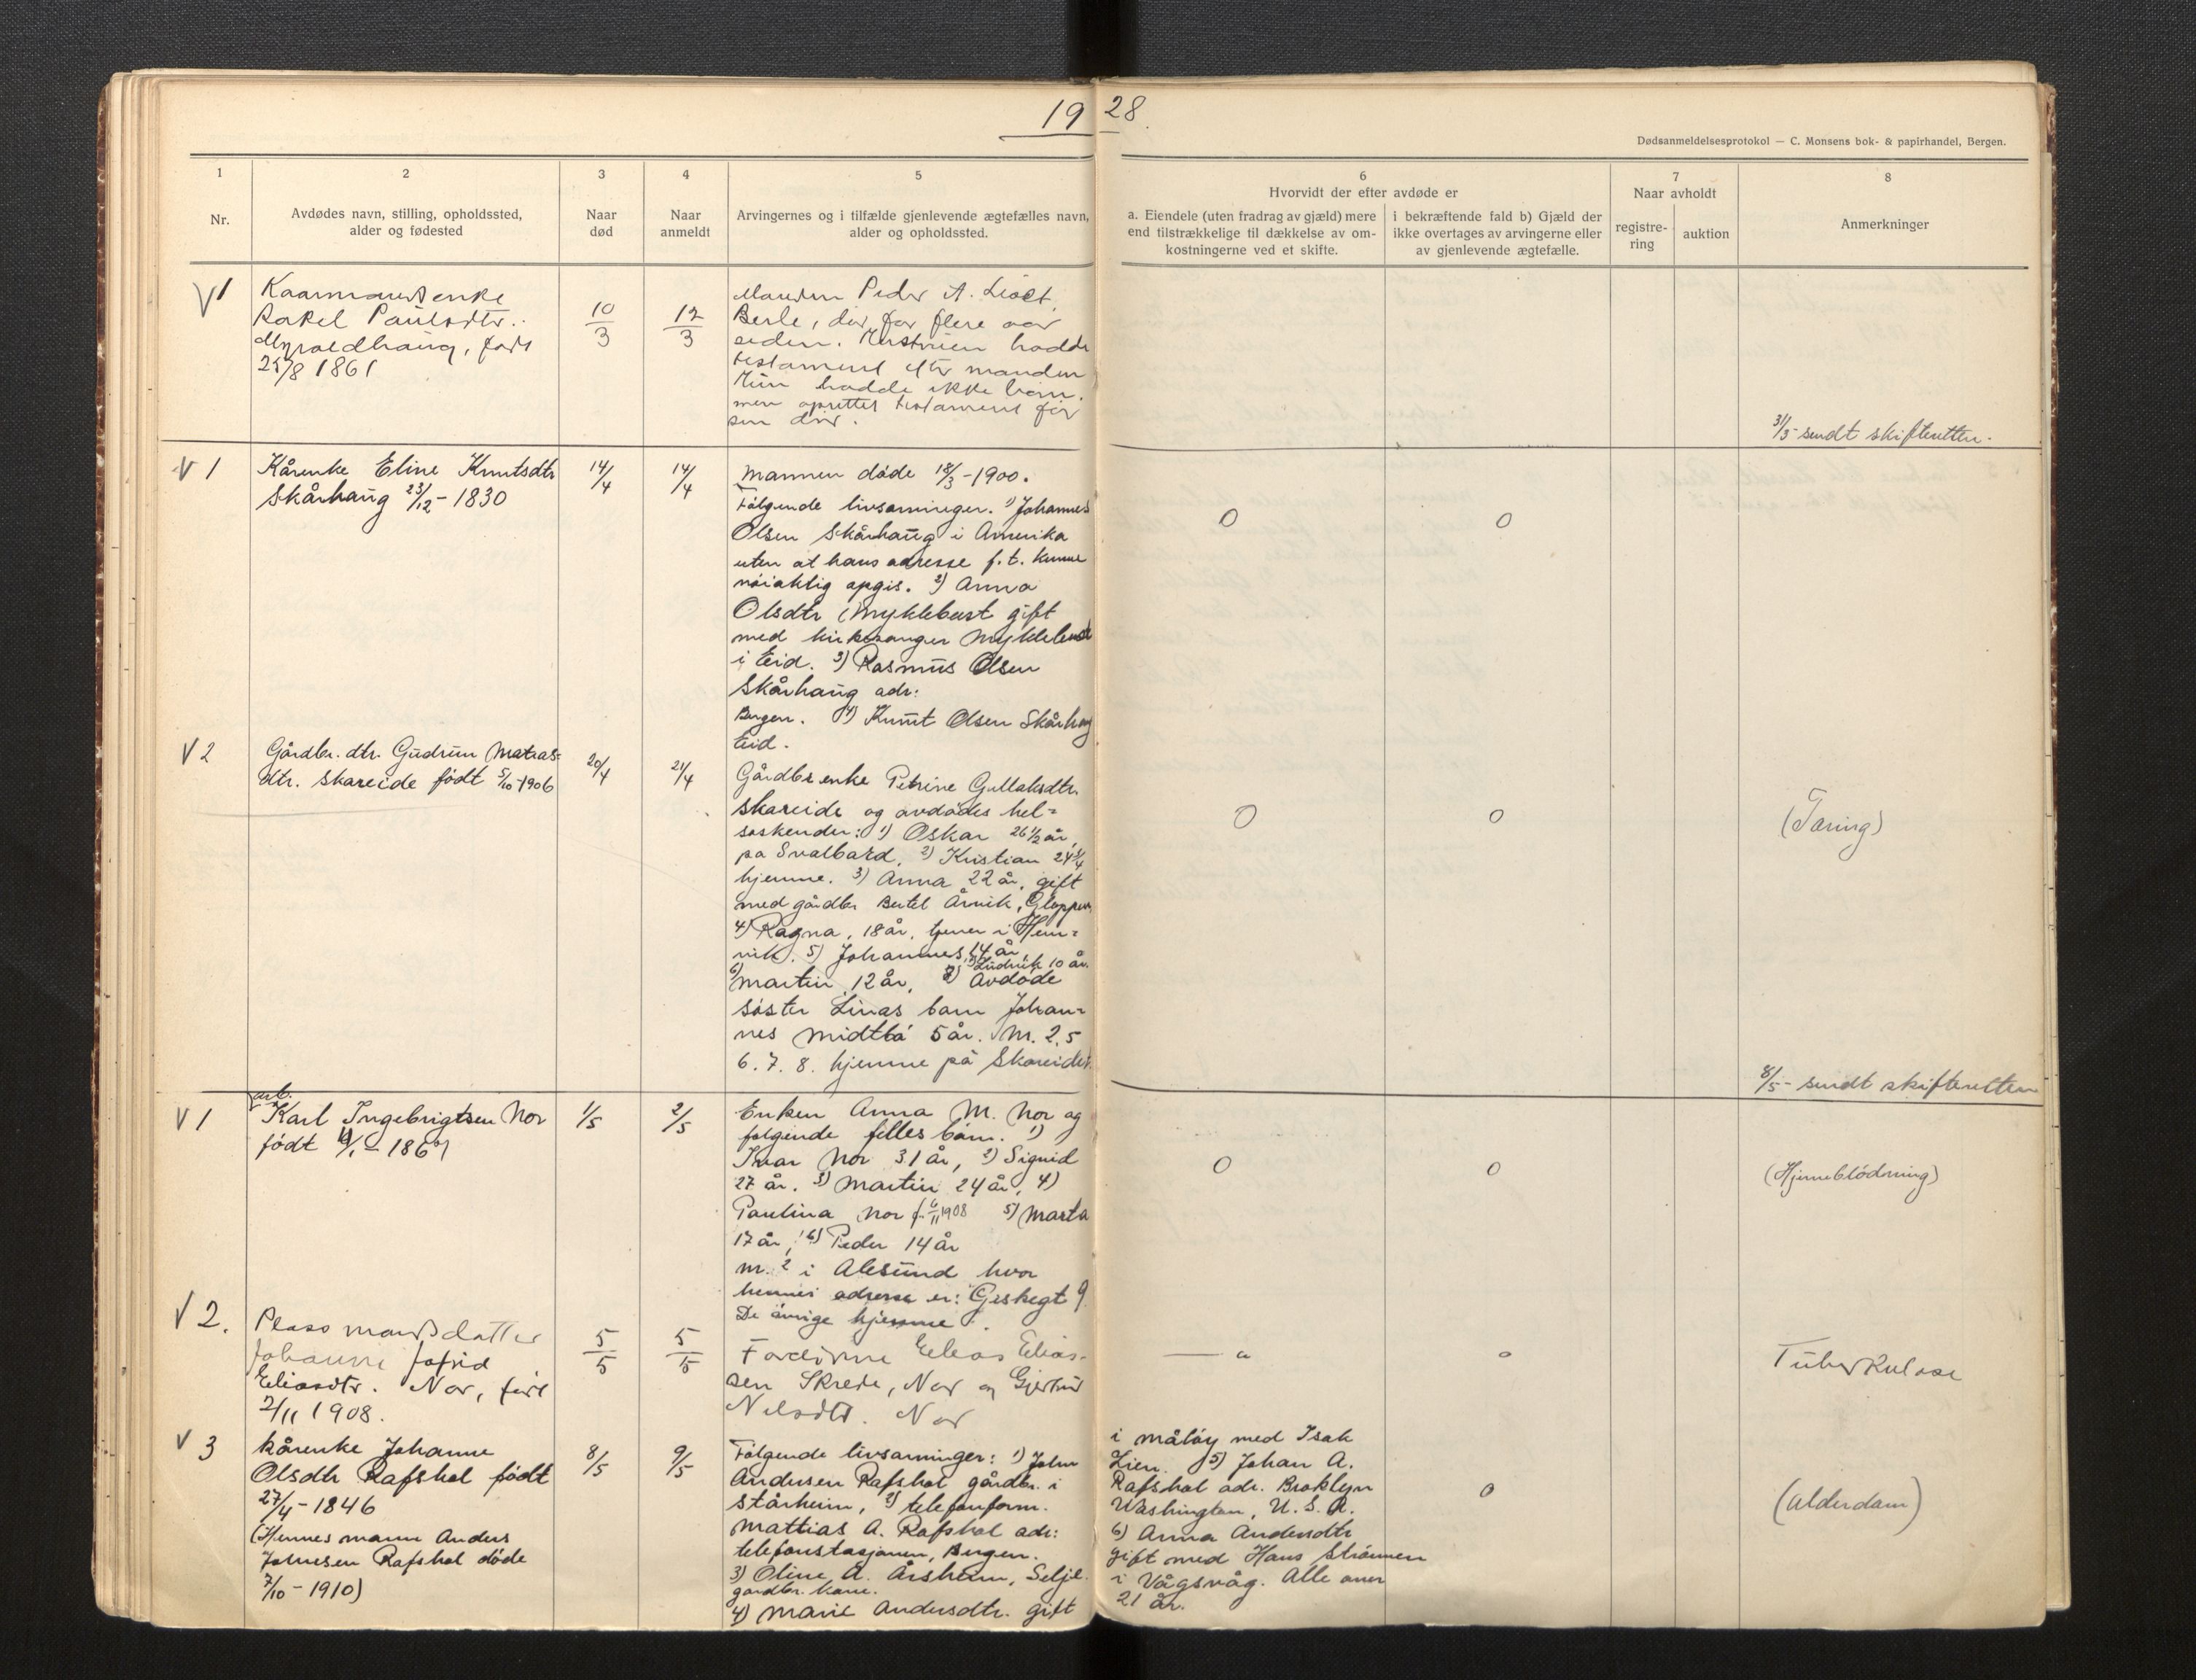 19 28.
Dødsanmeldelsesprotokol — C. Monsens bok- & papirhandel, Bergen.
1
2
3
4
5
6
7
8
Nr.
Avdødes navn, stilling, opholdssted,
alder og fødested
Naar
død
Naar
anmeldt
Arvingernes og i tilfælde gjenlevende ægtefælles navn,
alder og opholdssted.
Hvorvidt der efter avdøde er
a. Eiendele (uten fradrag av gjæld) mere
end tilstrækkelige til dækkelse av om-
kostningerne ved et skifte.
i bekræftende fald b) Gjæld der
ikke overtages av arvingerne eller
av gjenlevende ægtefælle.
Naar avholdt
registre-
ring
auktion
Anmerkninger
V 1
Kaarmandsenke
Rakel Paulsdtr.
Myroldhaug, født
25/8 1861
10/3
12/3
Manden Peder A.
Berle, død for flere aar
siden. Hustruen hadde
testament efter manden
Hun hadde ikke barn,
men oprettet testament før
sin død.
31/3 sendt skifteretten.
V 1
Kårenke Eline Knutsdtr
Skårhaug 23/12 - 1830
14/4
14/4
Mannen døde 18/3 - 1900.
Følgende livsarvinger. 1) Johannes
Olsen Skårhaug i Amerika
uten at hans adresse f. t. kunne
nøiaktig opgis. 2) Anna
Olsdtr Myklebust gift
med kirkesanger Myklebust
i Eid. 3) Rasmus Olsen
Skårhaug adr:
Bergen. 4) Knut Olsen Skårhaug
Eid.
0
0
V 2
Gårdbr. dtr. Gudrun Matias-
dtr. Skareide født 5/10 - 1906
20/4
21/4
Gårdbr enke Petrine Gullaksdtr.
Skareide og avdødes hel-
søskender: 1) Oskar 26 1/2 år,
på Svalbard, 2) Kristian 24 3/4
hjemme. 3) Anna 22 år, gift
med gårdbr Bertel Årvik, Gloppen
4) Ragna, 18 år, tjener i Hen-
vik. 5) Johannes, 14 år,
6) Martin 12 år, 7) Ludvik 10 år.
8) Avdøde
søster Linas barn Johan-
nes Midtbø 5 år. Nr. 2. 5
6. 7. 8. hjemme på Skareide.
0
0
(Tæring)
8/5 - sendt skifteretten
V 1
arb.
Karl Ingebrigtsen Nor
født
1/5
2/5
Enken Anna M. Nor og
følgende felles barn. 1)
Ivar Nor 31 år, 2) Signid
27 år. 3) Martin 24 år, 4)
Paulina Nor f. 6/11 1908 5) Marta
17 år, 6) Peder 14 år
Nr. 2 i Ålesund hvor
hennes adresse er: Geskegt 9
De øvrige hjemme.
0
0
(Hjerneblødning)
V 2.
Plassmandsdatter
Johanne Jofrid
Eliasdtr. Nor, født
2/11 1908.
5/5
5/5
Forældrene Elias Elias-
sen Skrede, Nor og Gjertrud
Nilsdtr. Nor
— "
0
Tuberkulose
V 3
Kårenke Johanne
Olsdtr Rafshol født
27/4 - 1846
(Hennes mann Anders
Johnesen Rafshol døde
7/10 - 1910)
8/5
9/5
Følgende livsarvinger: 1) John
Andersen Rafshol gårdbr. i
Stårheim, 2) telefonform.
Mattias A. Rafshol adr:
telefonstasjonen, Bergen.
3) Oline A. Årsheim, Selje.
gardbr. kone.
4) Marie Andersdtr. gift
i Måløy med Isak
Lien. 5) Johan A.
Rafshol adr. Broklyn
Washington, U. S. A.
6) Anna Andersdtr
gift med Hans Strømmen
i Vågsvåg. Alle over
21 år.
0
(Alderdom)